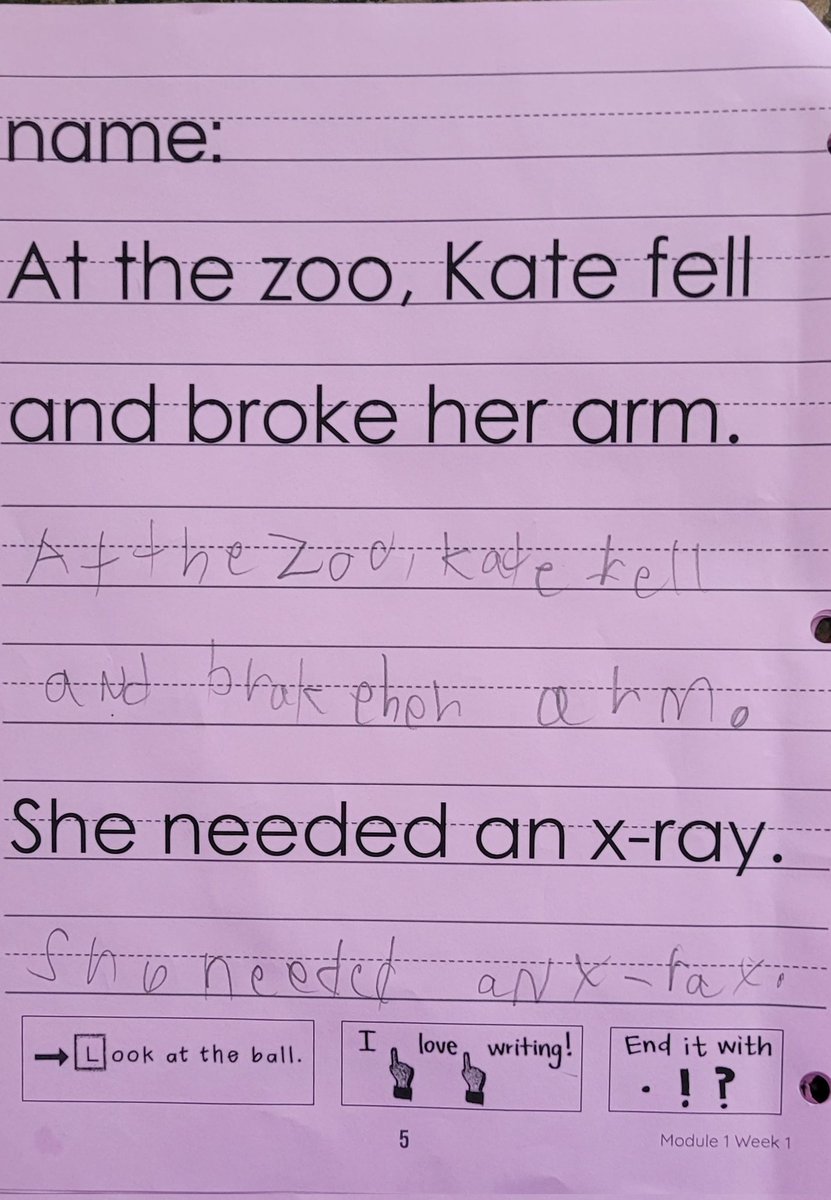 name:
At the zoo, Kate fell
and broke her arm.
At the zoo, kate fell
aNd brak eher arm.
She needed an x-ray.
She needed aN x-rax.
→ Look at the ball.
I love writing!
End it with
. ! ?
5
Module 1 Week 1